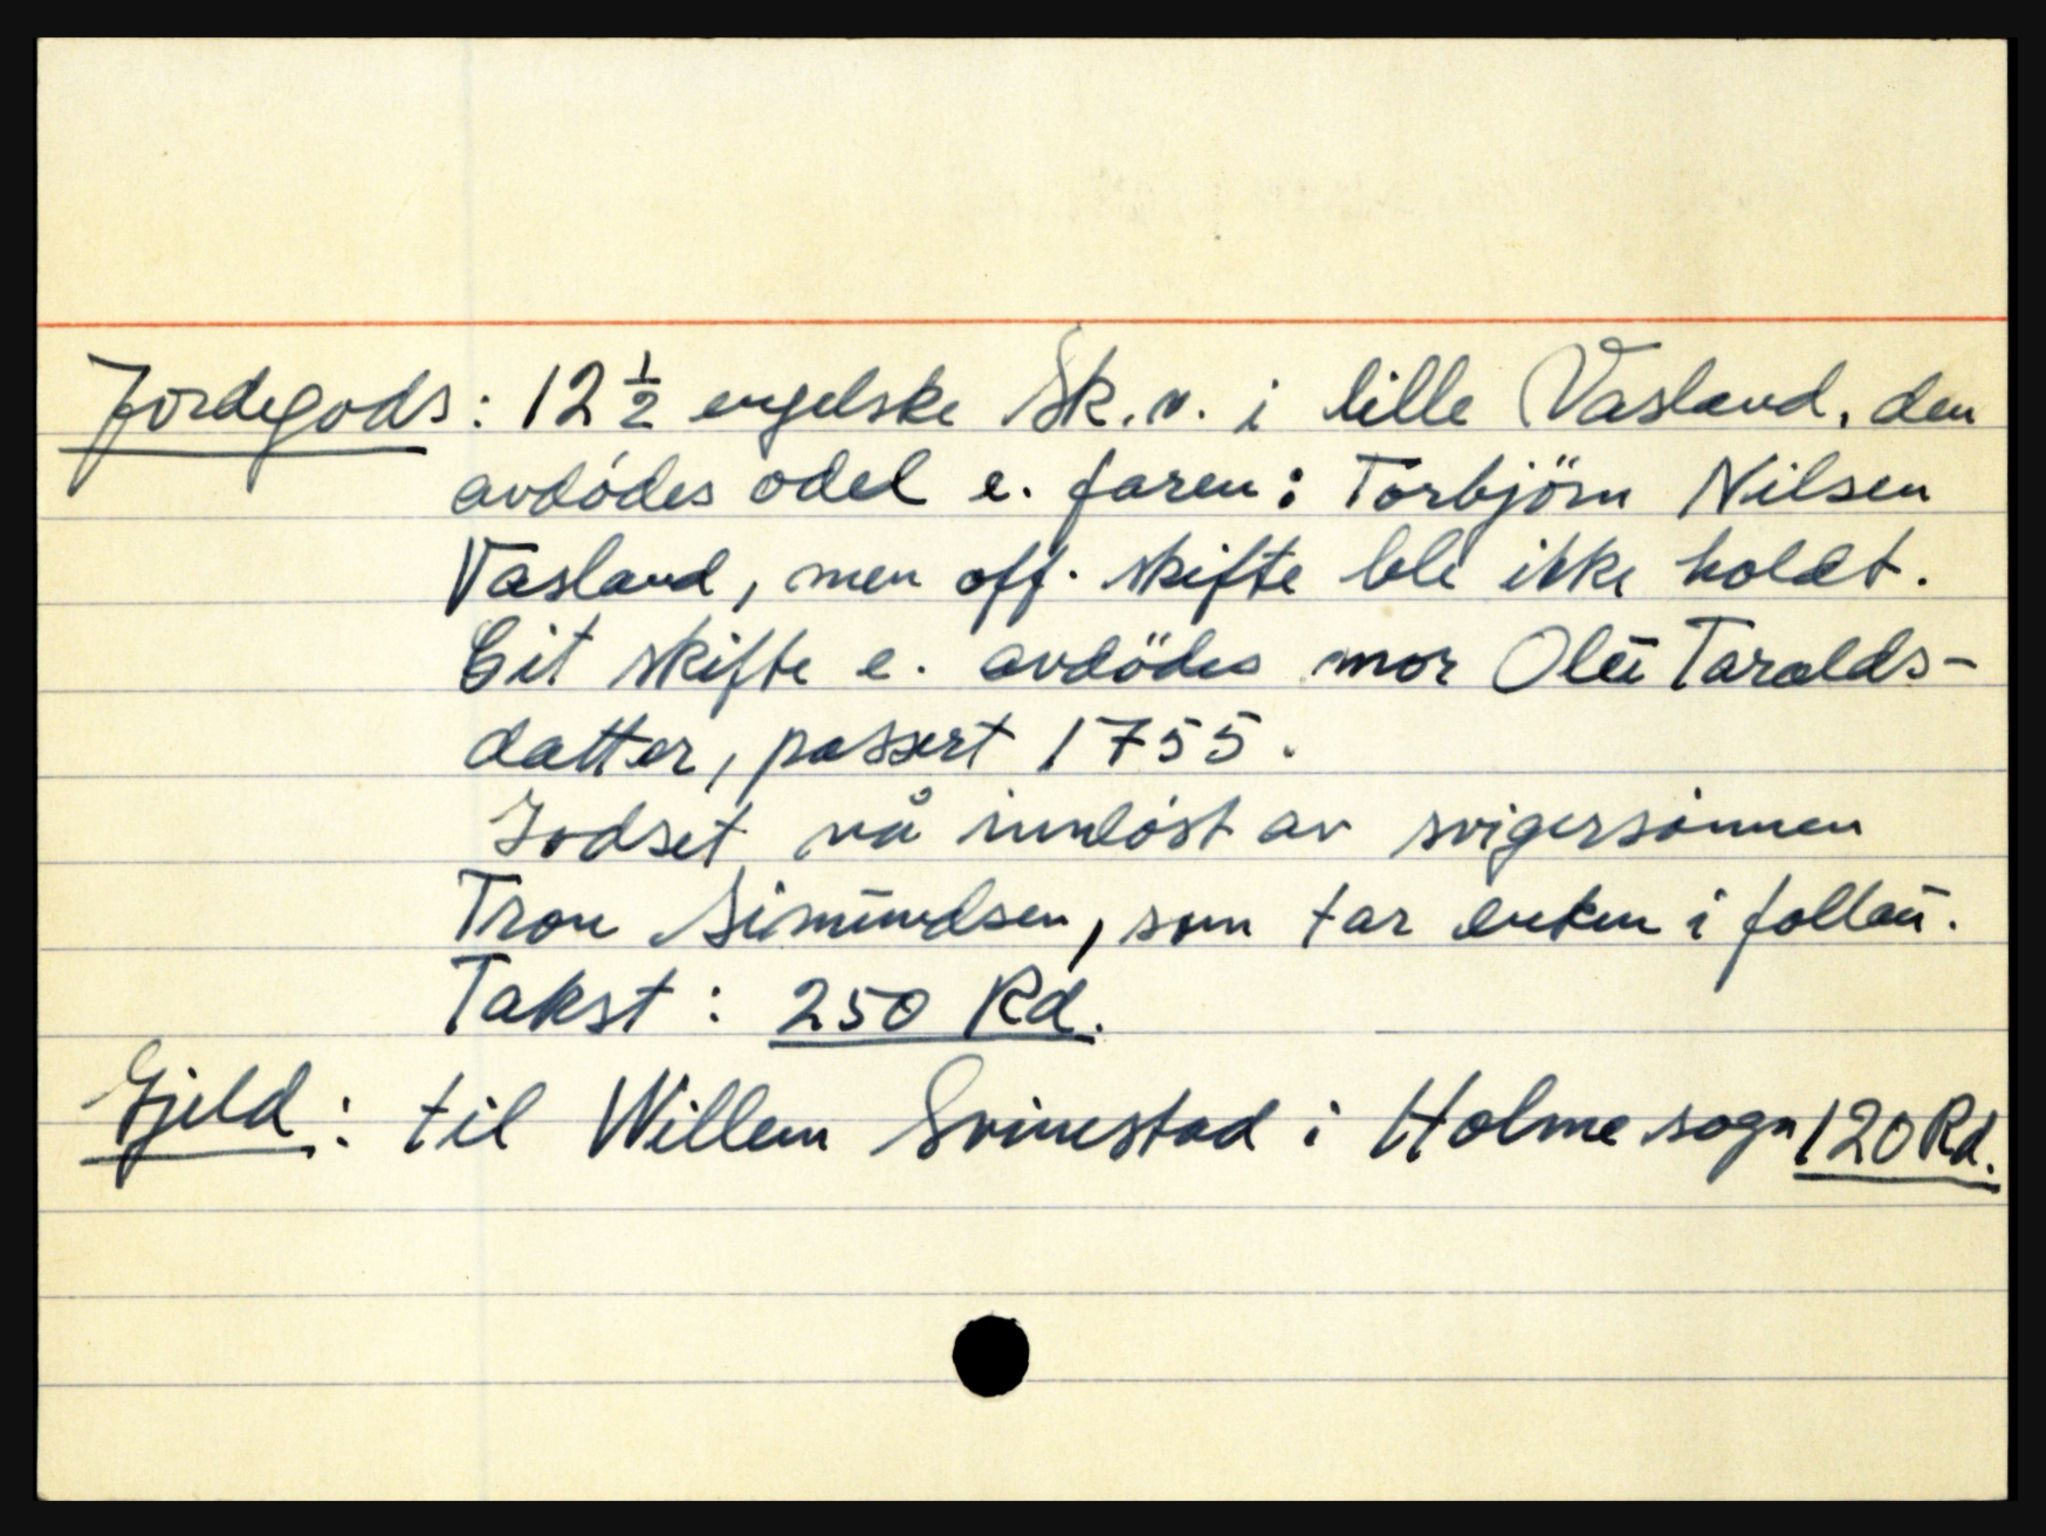 Jordegods: 12 1/2 engelske Sk. v. i lille Vasland, den
avdódes odel e. faren: Torbjörn Nilsen
Vasland, men off. skifte ble ikke holdt.
Cit skifte e. avdödes mor Olu Taralds-
datter, passert 1755.
Godset nå innlöst av svigersönnen
Tron Simundsen, som tar enken i follau.
Takst: 250 Rd.
Gjeld: til Willem Svinestad i Holme sogn 120 Rd.